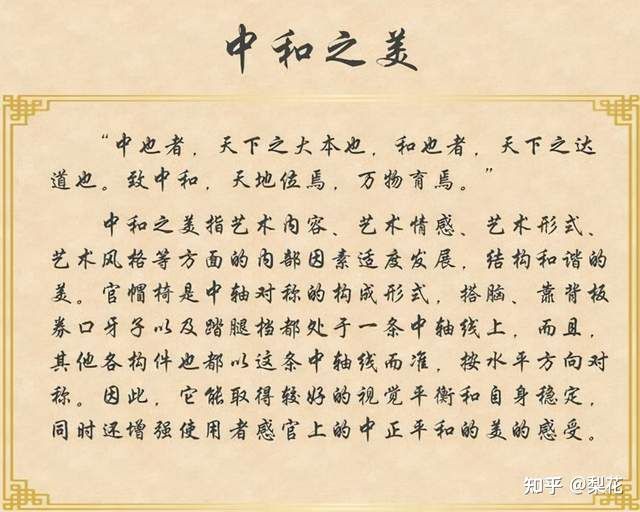 中和之美
“中也者，天下之大本也，和也者，天下之达
道也。致中和，天地位焉，万物育焉。”
中和之美指艺术内容、艺术情感、艺术形式、
艺术风格等方面的内部因素适度发展，结构和谐的
美。官帽椅是中轴对称的构成形式，搭脑、靠背板
券口牙子以及踏腿档都处于一条中轴线上，而且，
其他各构件也都以这条中轴线而准，按水平方向对
称。因此，它能取得较好的视觉平衡和自身稳定，
同时还增强使用者感官上的中正平和的美的感受。
知乎 @梨花